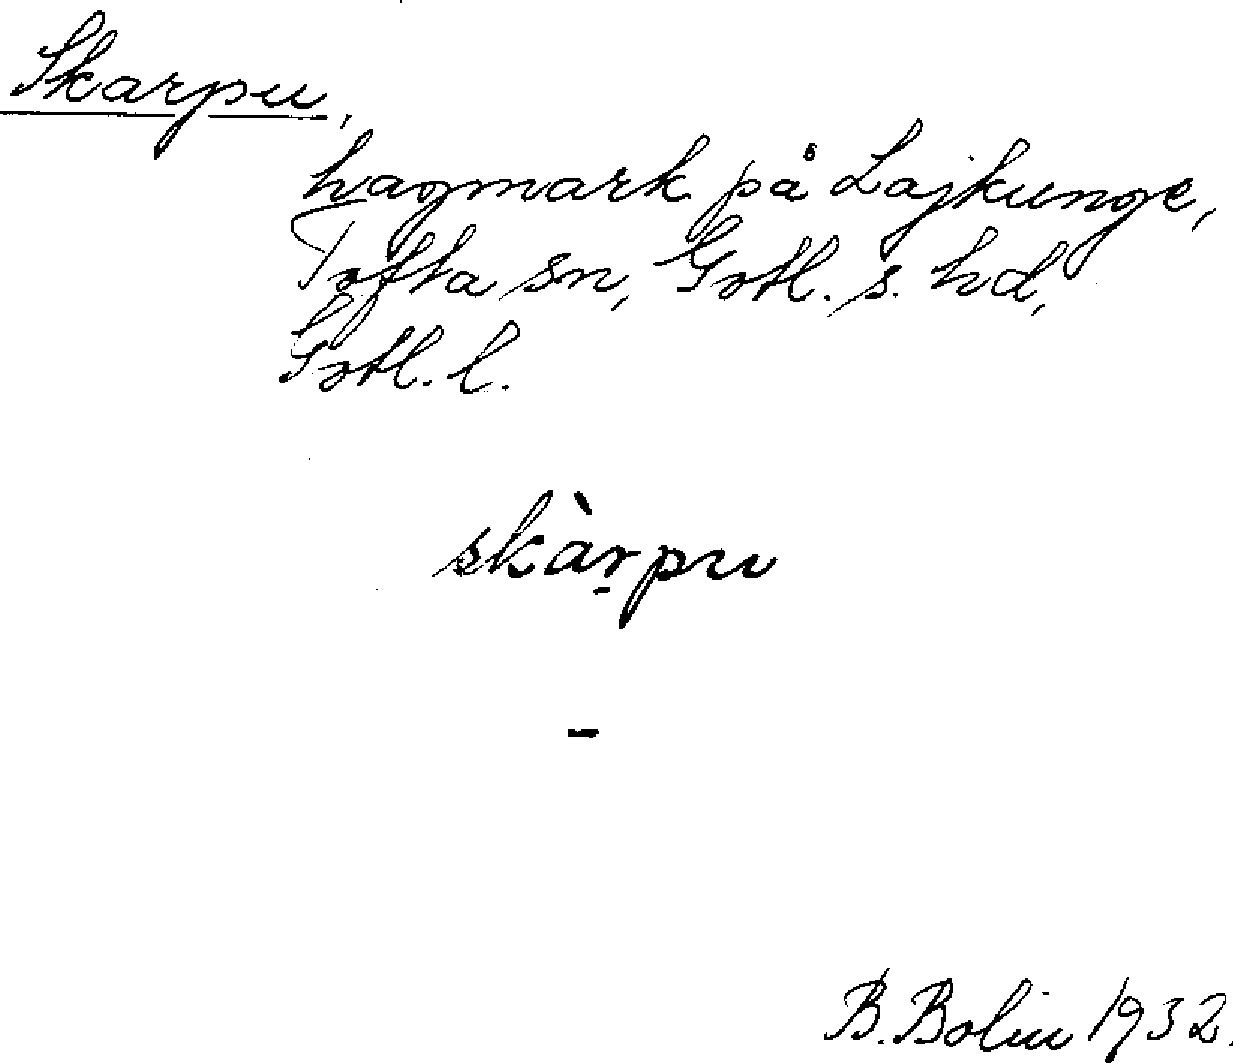 Skarpu,
hagmark på Lajkunge,
Tofta sn, Gotl. s. hd,
Gotl. l.
skàr̠pu
–
B. Bolin 1932.